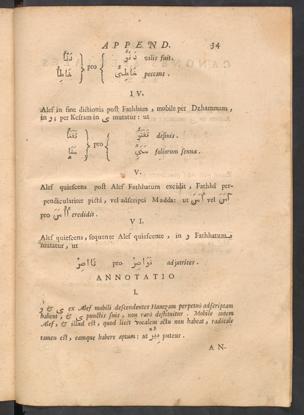 APPEND. 34
pro
vilis fuit.
peccans.
IV.
Alef in fine dictionis post Fathhum, mobile per Dzhammum,
in و, per Kesram in ي mutatur: ut
pro
desinis.
foliorum
V.
Alef quiescens post Alef Fathhatum excidit, Fathhâ per-
pendiculariter pictâ, vel adscripto Madda: ut vel
pro credidit.
VI.
Alef quiescens, sequente Alef quiescente, in و Fathhatum
mutatur, ut
pro adjutrices.
ANNOTATIO
I.
و & ي ex Alef mobili descendentes Hamzam perpetuò adscriptam
habent, & ي punctis suis, non rarò destituitur. Mobile autem
Alef, & illud est, quod licet vocalem actu non habeat, radicale
tamen est, eamque habere aptum: ut puteus.
AN-